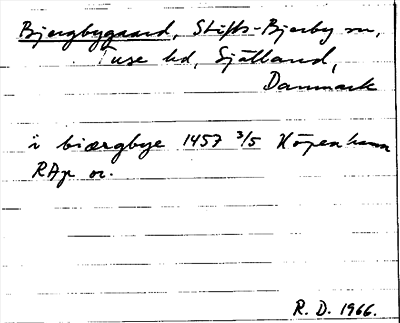 Bjergbygaard, Stifts-Bjerby sn,
Tuse hd, Själland,
Danmark
i biærgbye 1457 3/5 Köpenhamn
RAp or.
R. D. 1966.